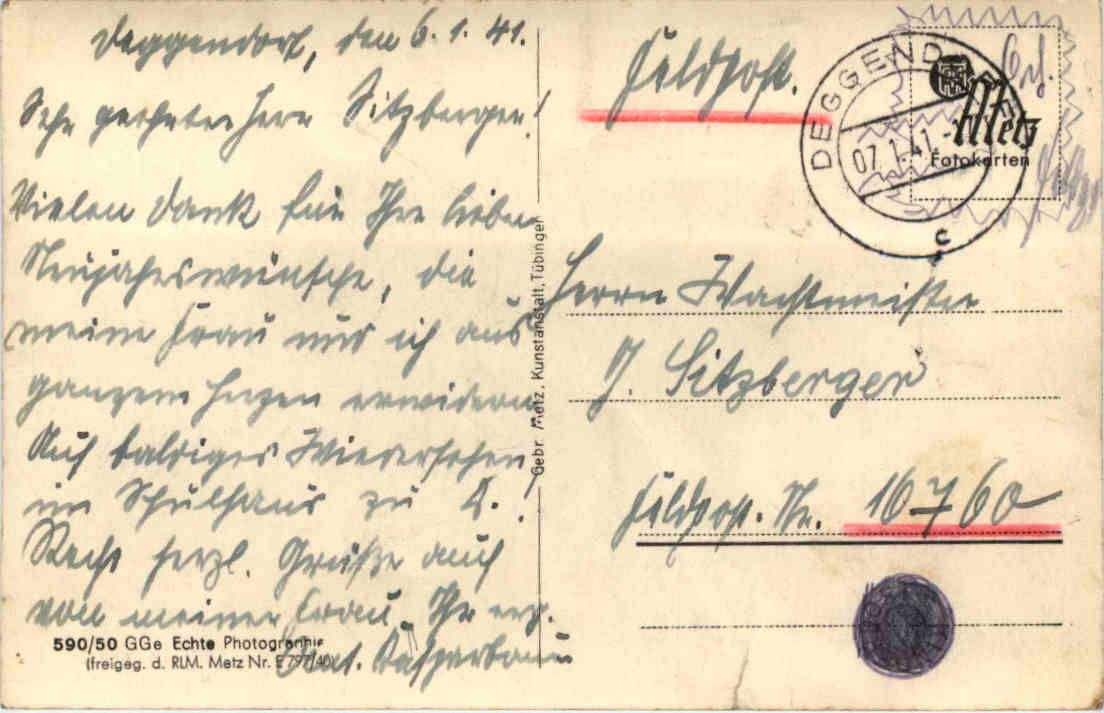 Deggendorf, den 6.1.41.
Sehr geehrter Herr Sitzberger!
Vielen Dank für Ihre lieben
Neujahrswünsche, die
meine Frau und ich aus
ganzem Herzen erwidern.
Auf baldiges Wiedersehen
im Schulhaus zu D.!
Recht herzl. Grüße auch
von meiner Frau. Ihr erg.
590/50 GGe Echte Photographie
(freigeg. d. RLM. Metz Nr. E 797/40)
Gebr. Metz, Kunstanstalt, Tübingen
Feldpost.
DEGGENDORF
07.1.41.
c
Metz
Fotokarten
Herrn Wachtmeister
J. Sitzberger
Feldpost-Nr. 16760